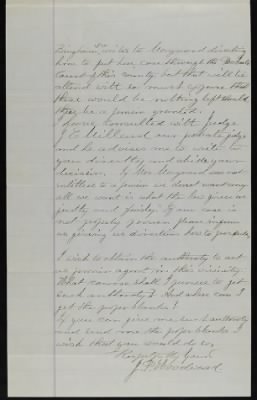 Bingham writes to Maynard directing
him to put her case through the Probate
Court of this county, but that will be
attend with so much expense that
there would be nothing left should
there be a pension granted.
I have consulted with Judge
J. E. Millard our probate judge
and he advises me to write to
you directly and abide your
decision. If Mrs Maynard was not
entitled to a pension we do not want any
all we want is what the law gives us
justly and fairly. If our case is
not properly proven please inform
us giving us directions how to proceed.
I wish to obtain the authority to act
as pension agent in this vicinity.
What course shall I pursue to get
such authority? And where can I
get the proper blanks?
If you can give me such authority
and send me the proper blanks I
wish that you would do so.
Respectfully Yours
J. P. Woodward